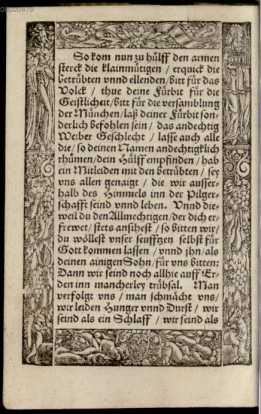 So kom nun zu hülff den armen
sterck die klainmütigen / erquick die
betrübten vnnd ellenden / bitt für das
Volck / thue deine Fürbit für die
Geistlicheit / bitt für die versamblung
der München / laß deiner Fürbit son-
derlich befohlen sein / das andechtig
Weiber Geschlecht / lasse auch alle
die / so deinen Namen andechtigklich
rhümen / dein Hülff empfinden / hab
ein Mitleiden mit den betrübten / sey
vns allen genaigt / die wir ausser-
halb des Himmels inn der Pilger-
schafft seind vnnd leben. Vnnd die-
weil du den Allmechtigen / der dich er-
frewet / stets ansihest / so bitten wir /
du wöllest vnser seufftzen selbst für
Gott kommen lassen / vnnd jhn / als
deinen ainigen Sohn / für vns bitten:
Dann wir seind noch allhie auff Er-
den inn mancherley trübsal. Man
verfolgt vns / man schmächt vns /
wir leiden Hunger vnnd Durst / wir
seind als ein Schlaff / wir seind als